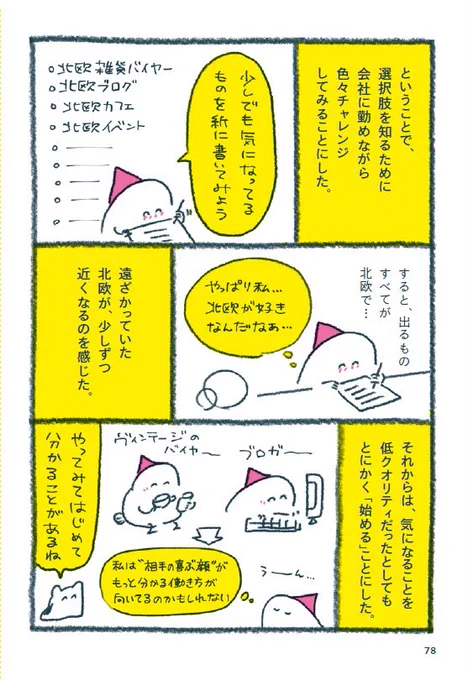 ということで、
選択肢を知るために
会社に勤めながら
色々チャレンジ
してみることにした。
少しでも気になってる
ものを紙に書いてみよう
○北欧雑貨バイヤー
○北欧ブログ
○北欧カフェ
○北欧イベント
すると、出るもの
すべてが
北欧で…
やっぱり私…
北欧が好き
なんだなぁ…
遠ざかっていた
北欧が、少しずつ
近くなるのを感じた。
それからは、気になることを
低クオリティだったとしても
とにかく「始める」ことにした。
ブロガー
ヴィンテージの
バイヤー
うーん…
私は“相手の喜ぶ顔”が
もっと分かる働き方が
向いてるのかもしれない
やってみてはじめて
分かることがあるね
78